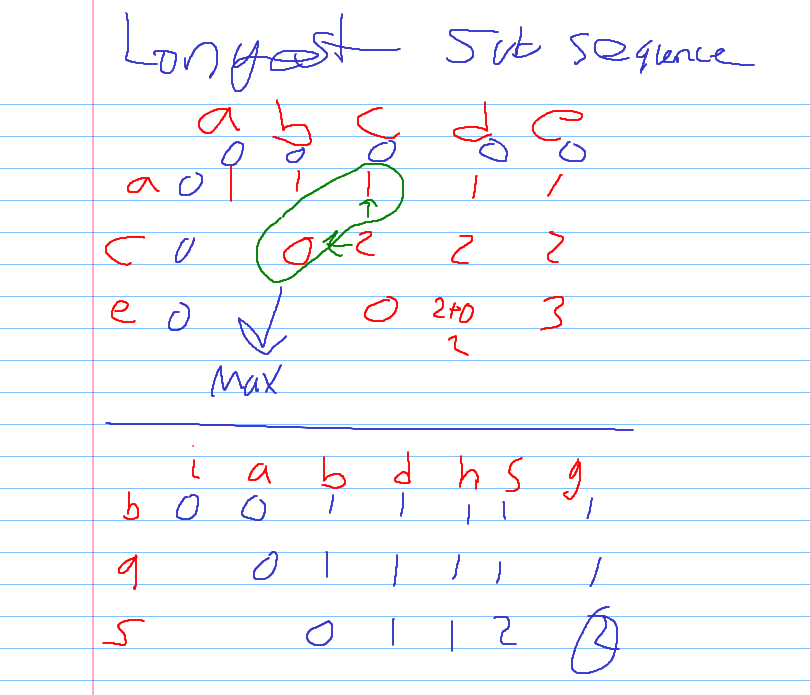 Longest Sub sequence
a b c d e
0 0 0 0 0
a 0 1 1 1 1 1
c 0 0 2 2 2
e 0 0 2+0 3
2
Max
i a b d h s g
b 0 0 1 1 1 1 1
q 0 1 1 1 1 1
s 0 1 1 2 2